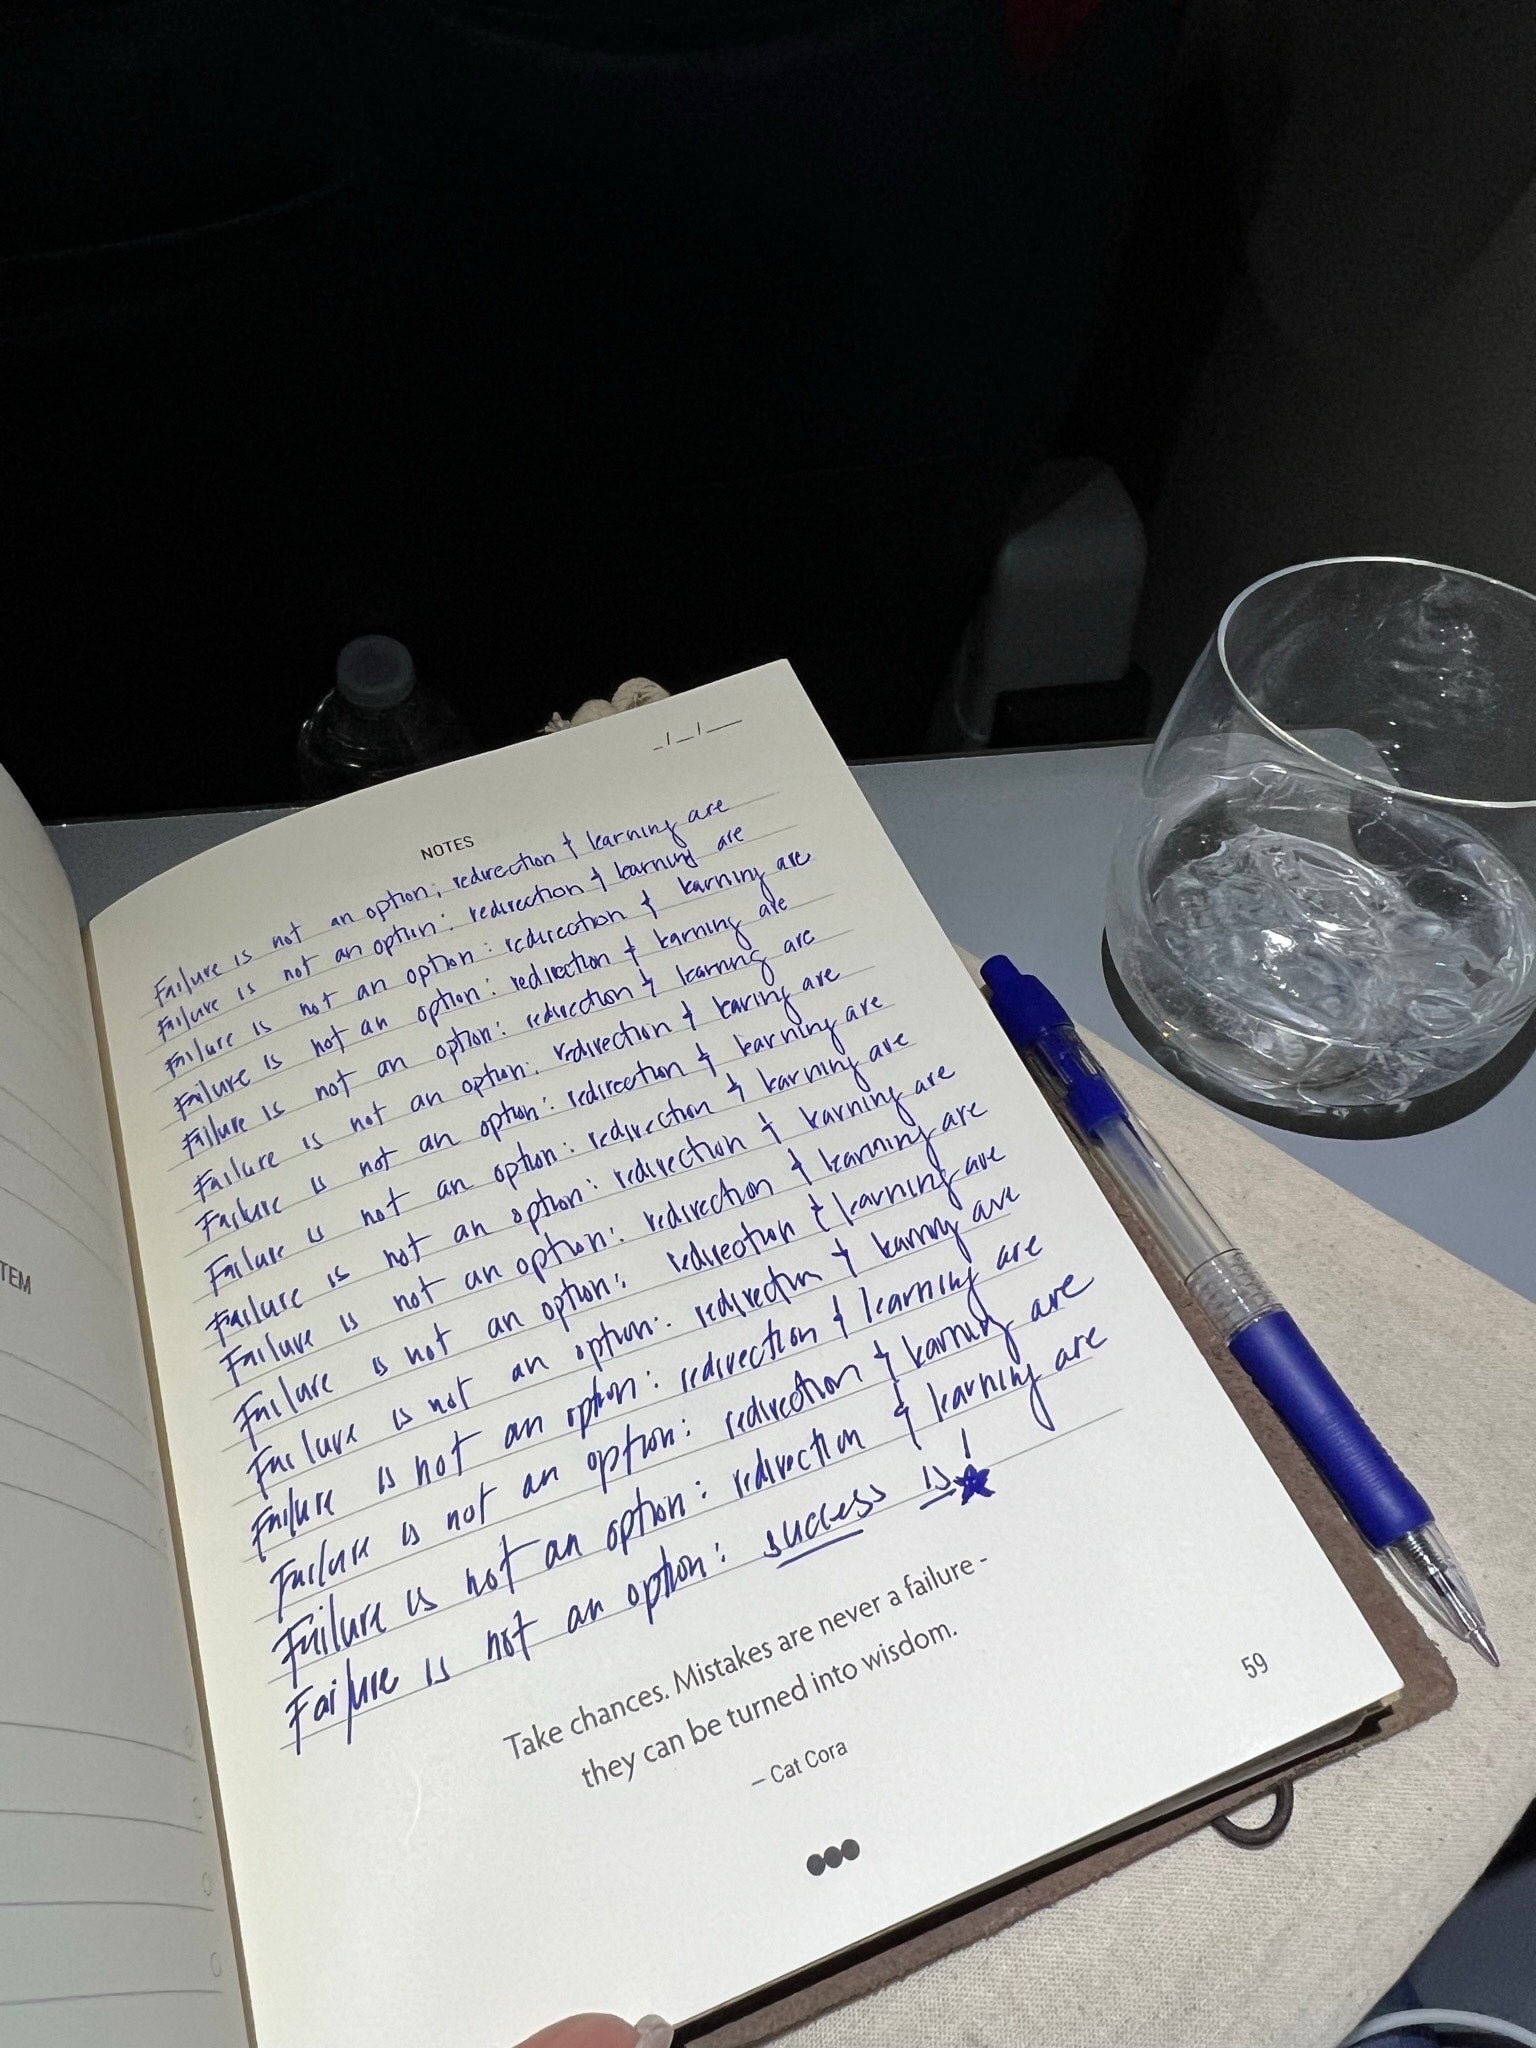 _/_/__
NOTES
Failure is not an option; redirection & learning are
Failure is not an option: redirection & learning are
Failure is not an option: redirection & learning are
Failure is not an option: redirection & learning are
Failure is not an option: redirection & learning are
Failure is not an option: redirection & learning are
Failure is not an option: redirection & learning are
Failure is not an option: redirection & learning are
Failure is not an option: redirection & learning are
Failure is not an option: redirection & learning are
Failure is not an option: redirection & learning are
Failure is not an option: redirection & learning are
Failure is not an option: redirection & learning are
Failure is not an option: redirection & learning are
Failure is not an option: redirection & learning are
Failure is not an option: success is!
Take chances. Mistakes are never a failure -
they can be turned into wisdom.
– Cat Cora
59
TEM